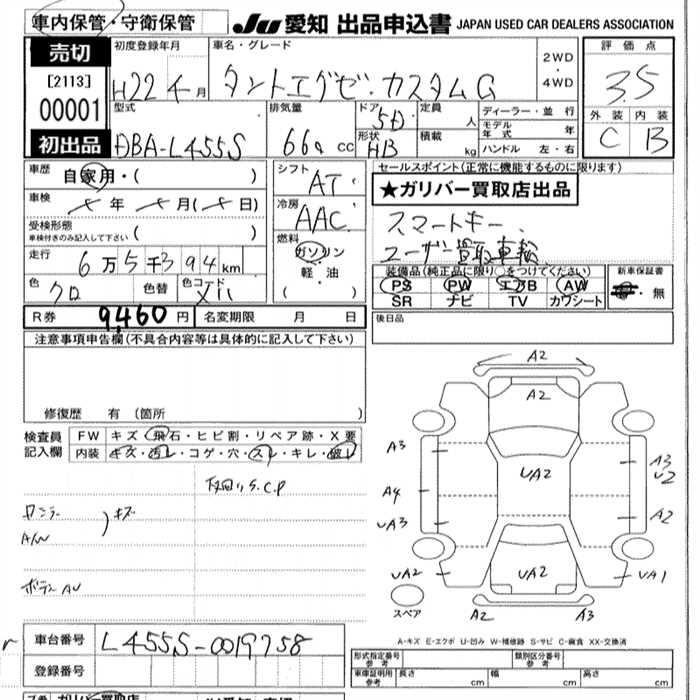 車内保管・守衛保管 JU 愛知 出品申込書 JAPAN USED CAR DEALERS ASSOCIATION
売切
[2113]
00001
初出品
初度登録年月
H22 4月
車名・グレード
タントエグゼ・カスタムG
2WD
・
4WD
評価点
3.5
外装 内装
C B
型式
DBA-L455S
排気量
660 cc
ドア
5D
形状
HB
定員
人
積載
kg
ディーラー・並行
モデル年式 年
ハンドル 左・右
車歴
自家用・( )
車検
年 月( 日)
受検形態
車検付きのみ記入して下さい ( )
走行
6万5千394km
色
クロ
色替
色コード
X11
シフト
AT
冷房
AAC
燃料
ガソリン
軽・油
( )
セールスポイント(正常に機能するものに限ります)
★ガリバー買取店出品
スマートキー、
ユーザー買取車輌
装備品(純正品に限り○をつけてください)
PS PW エアB AW
SR ナビ TV カワシート
新車保証書
・無
R券 9,460円 名変期限 月 日
後日品
注意事項申告欄(不具合内容等は具体的に記入して下さい)
修復歴 有(箇所 )
検査員記入欄
FW キズ・飛石・ヒビ割・リペア跡・X要
内装 キズ・汚レ・コゲ・穴・スレ・キレ・破レ
S.C.P
キズ
A/W
A2
A2
A3
UA2
A3
U2
A4
UA3
A2
UA2
UA2
UA1
スペア
A2
A3
A-キズ E-エクボ U-凹み W-補修跡 S-サビ C-腐食 XX-交換済
車台番号 L455S-0019758
登録番号
形式指定番号 参考
類別区分番号 参考
車庫証明用 参考 長さ cm 幅 cm 高さ cm
ガリバー買取店